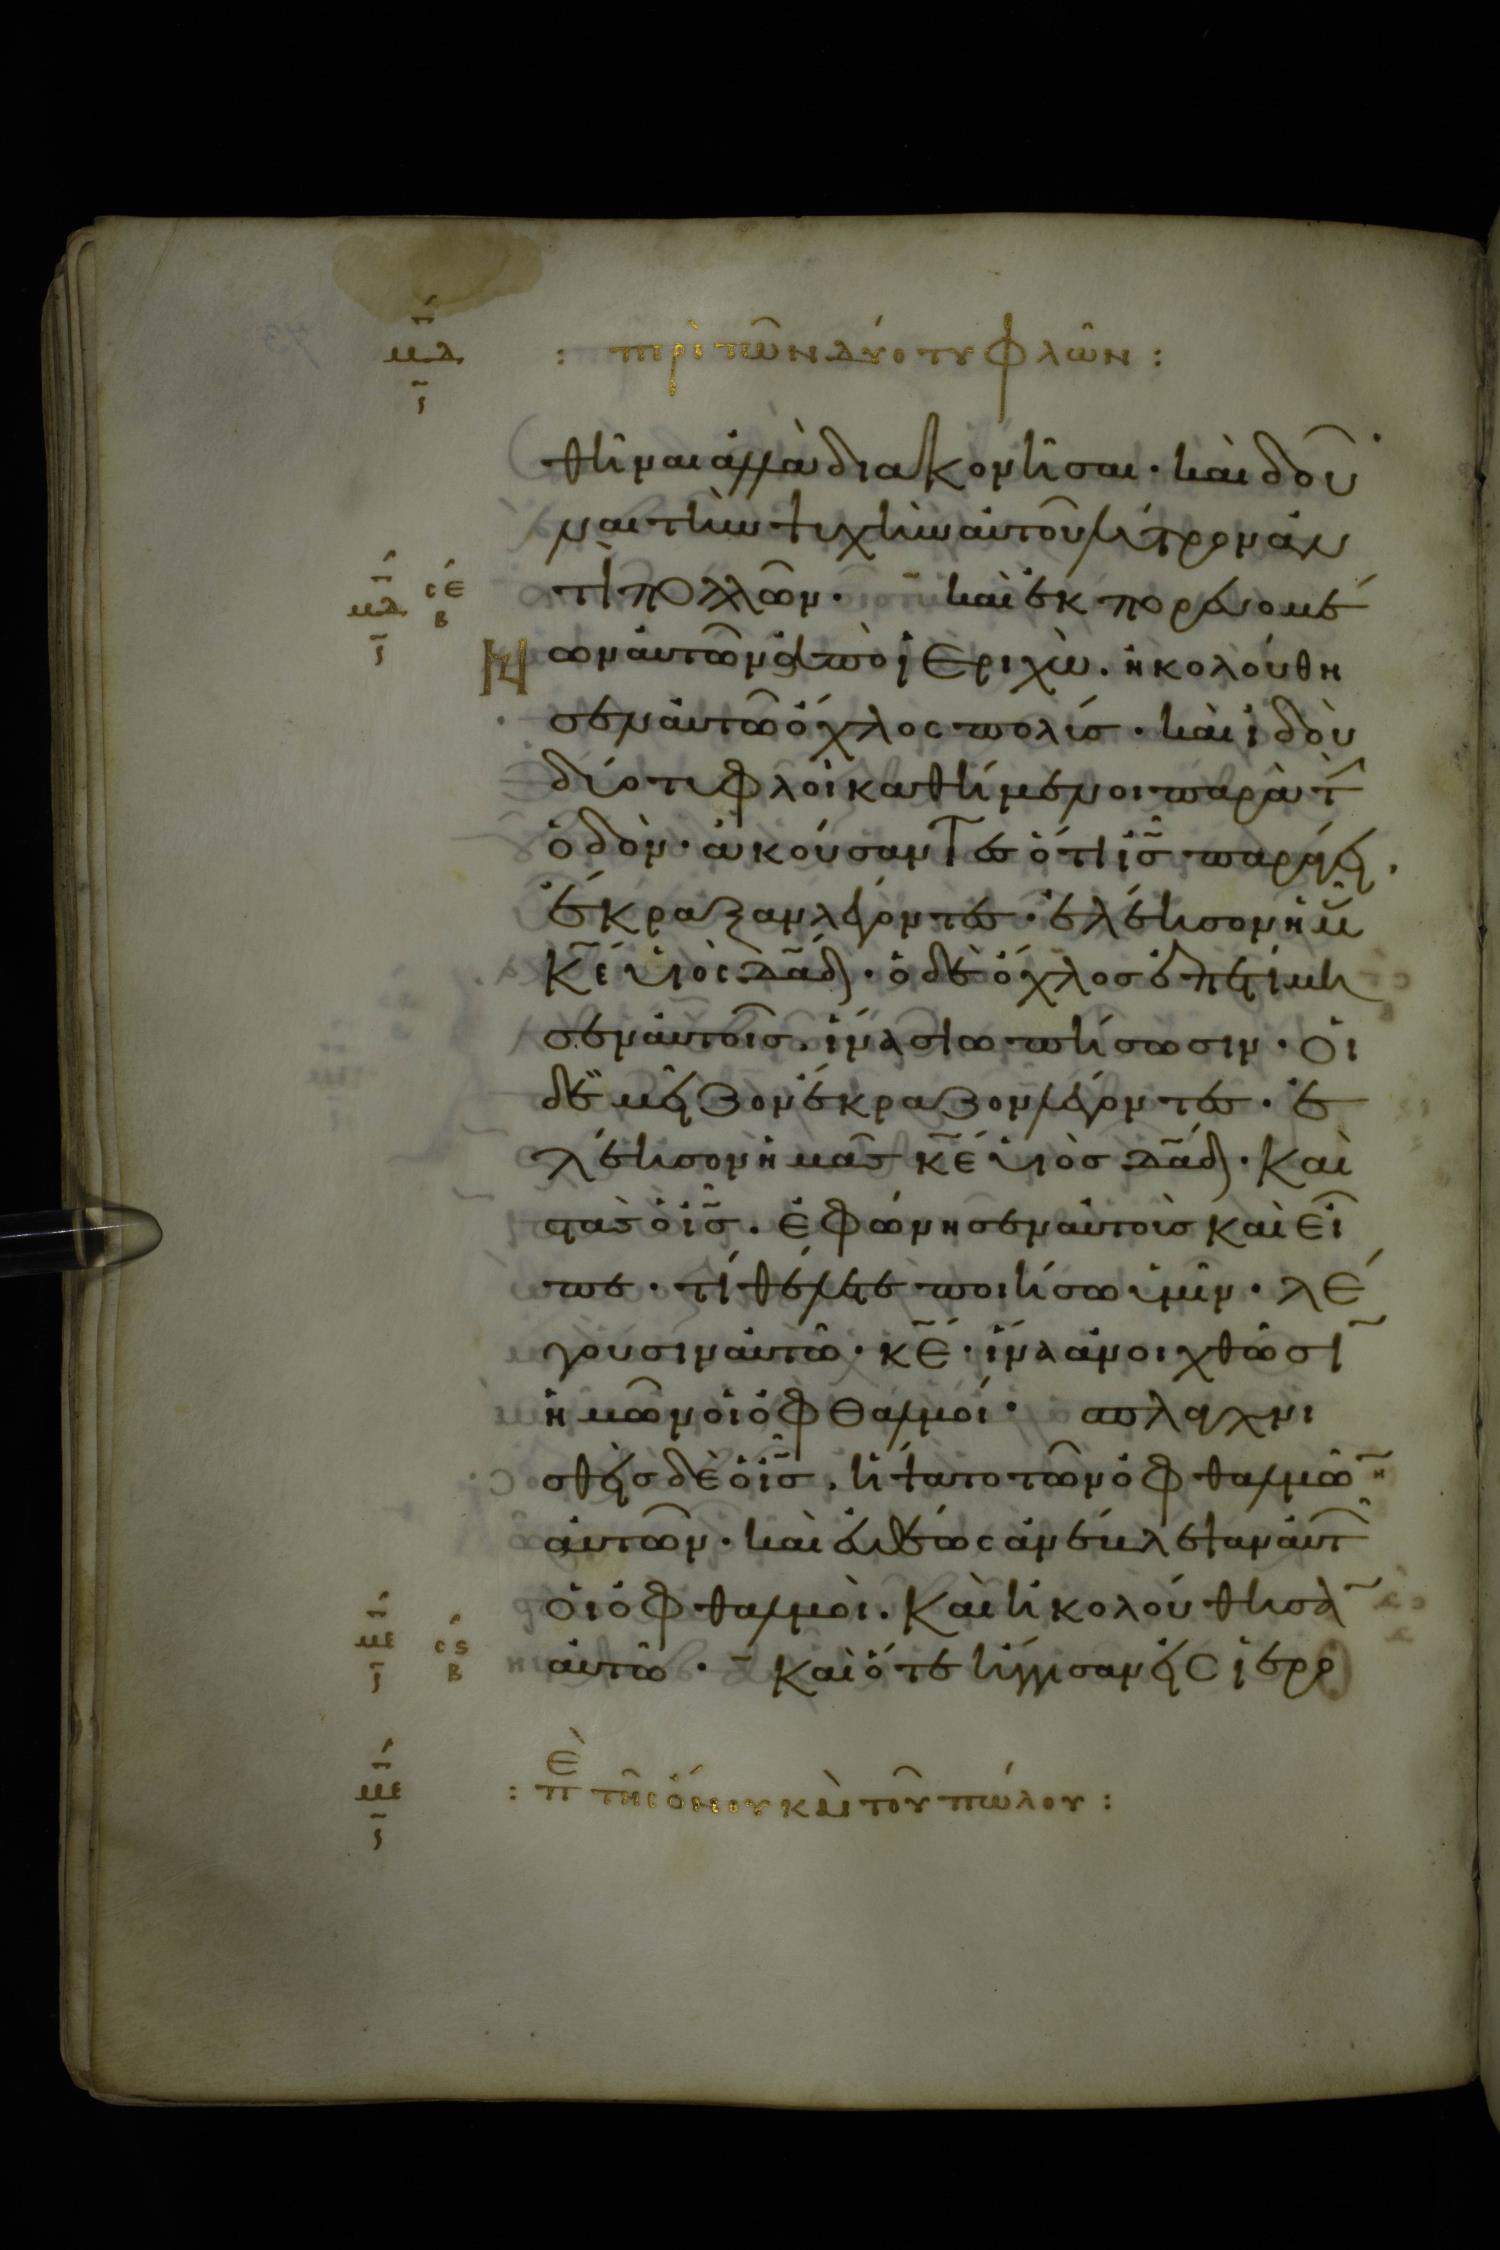 μδ
: περὶ τῶν δύο τυφλῶν :
θῆναι ἀλλὰ διακονῆσαι · καὶ δοῦ
ναι τὴν ψυχὴν αὐτοῦ λύτρον ἀν
τὶ πολλῶν · καὶ ἐκπορευομέ
μδ σξε β
νων αὐτῶν ἀπὸ ἱεριχὼ . ἠκολούθη
σεν αὐτῶ ὄχλος πολύσ · καὶ ἰδοὺ
δύο τυφλοὶ καθήμενοι παρὰ τ
ὁδὸν · ἀκούσαντεσ ὅτι ἰσ παράγει .
ἔκραξαν λέγοντεσ · ἐλέησον ἡμ
κε υἱὸς δαδ · ὁ δὲ ὄχλοσ ἐπετίμη
σεν αὐτοῖσ . ἵνα σιωπήσωσιν · οἱ
δὲ μεῖζον ἔκραζον λέγοντεσ · ἐ
λέησον ἡμᾶσ κε υἱὸσ δαδ · καὶ
στὰσ ὁ ἰσ . ἐφώνησεν αὐτοὺσ καὶ εἶ
πε · τί θέλετε ποιήσω ὑμῖν · λέ
γουσιν αὐτῶ · κε · ἵνα ἀνοιχθῶσι
ἡμῶν οἱ ὀφθαλμοί · σπλαγχνι
σθεὶσ δὲ ὁ ἰσ . ἥψατο τῶν ὀφθαλμῶν
αὐτῶν · καὶ εὐθέως ἀνέβλεψαν αὐτ
οἱ ὀφθαλμοὶ . καὶ ἠκολούθησα
με
αὐτῶ · καὶ ὅτε ἤγγισαν εἰς ἱερο
με
: πε τῆς ὄνου καὶ τοῦ πώλου :